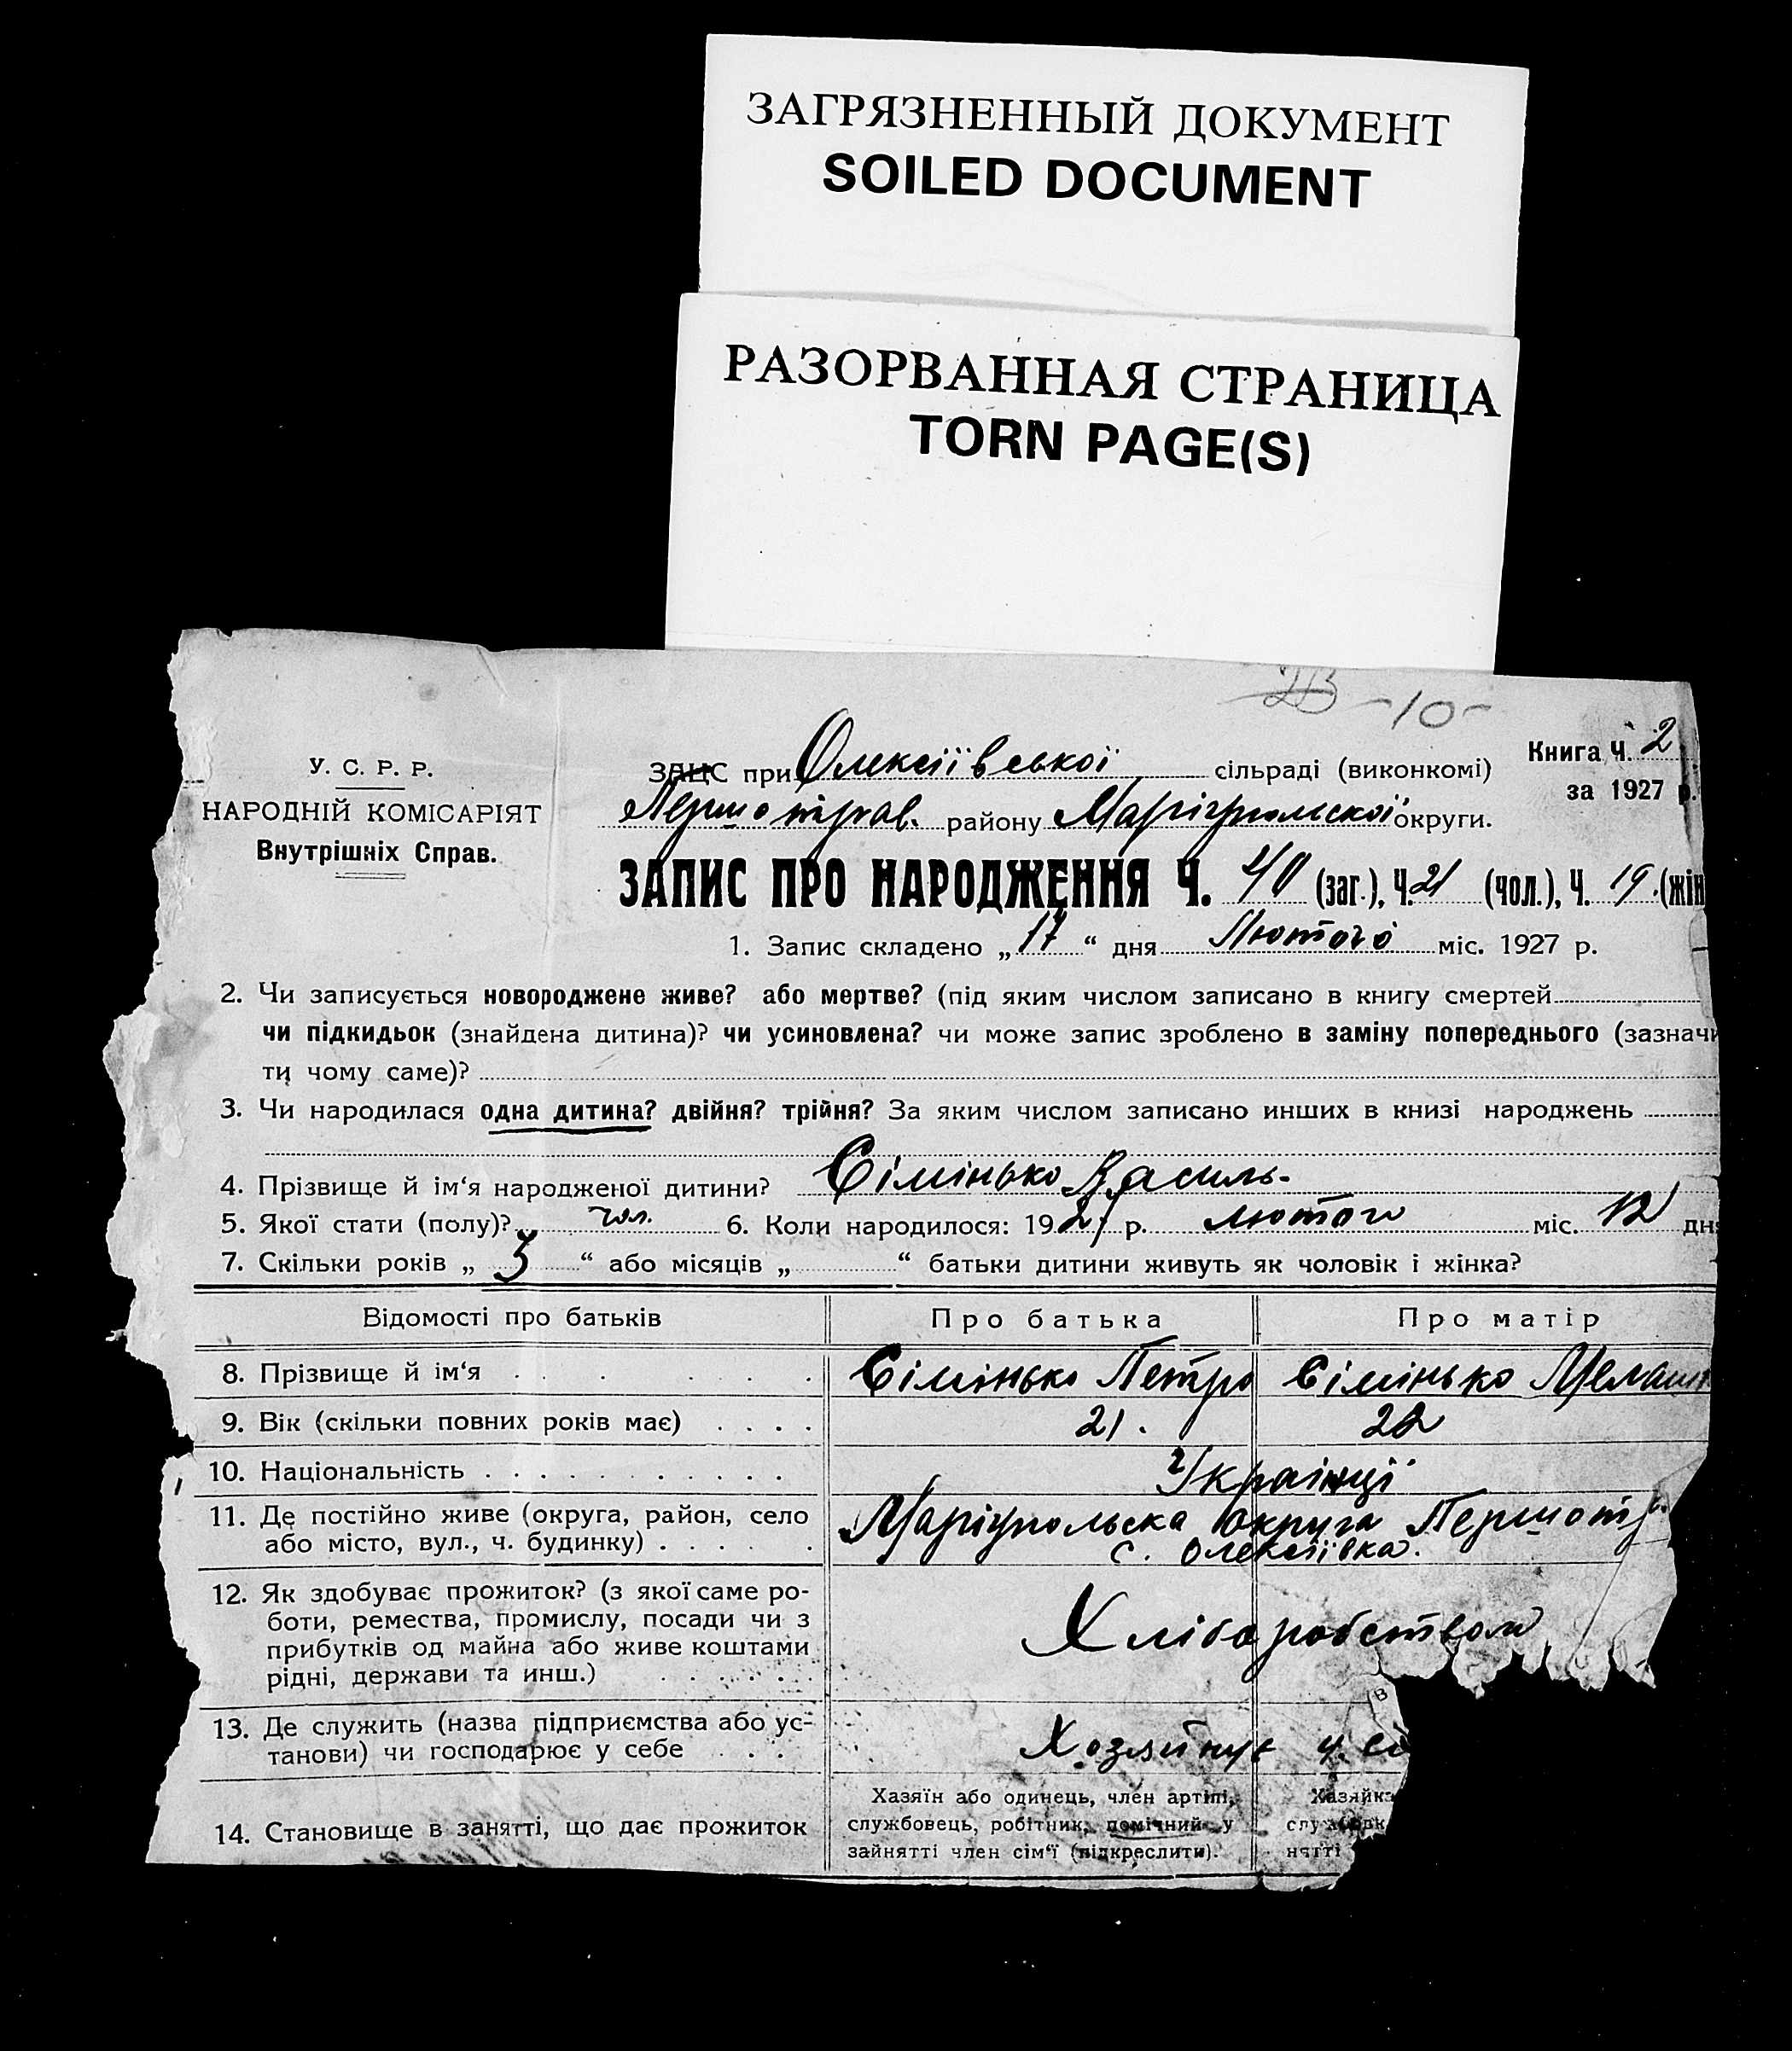 ЗАГРЯЗНЕННЫЙ ДОКУМЕНТ
SOILED DOCUMENT
РАЗОРВАННАЯ СТРАНИЦА
TORN PAGE(S)
-10-
У. С. Р. Р.
НАРОДНІЙ КОМІСАРІЯТ
Внутрішніх Справ.
ЗАЦС при Олексіївської сільраді (виконкомі)
Першотрав. району Маріупольскої округи.
Книга Ч. 2
за 1927 р.
ЗАПИС ПРО НАРОДЖЕННЯ Ч. 40 (заг.), Ч. 21 (чол.), Ч. 19. (жін
1. Запис складено „ 17 “ дня Лютого міс. 1927 р.
2. Чи записується новороджене живе? або мертве? (під яким числом записано в книгу смертей
чи підкидьок (знайдена дитина)? чи усиновлена? чи може запис зроблено в заміну попереднього (зазначи
ти чому саме)?
3. Чи народилася одна дитина? двійня? трійня? За яким числом записано инших в книзі народжень
4. Прізвище й ім‘я народженої дитини? Сімінько Василь.
5. Якої стати (полу)? чол. 6. Коли народилося: 1927 р. лютого міс. 12 дня
7. Скільки років „ 3 “ або місяців „ “ батьки дитини живуть як чоловік і жінка?
Відомості про батьків Про батька Про матір
8. Прізвище й ім‘я Сімінько Петро Сімінько Мелаш
9. Вік (скільки повних років має) 21. 22
10. Національність Украінці
11. Де постійно живе (округа, район, село Маріупольска Округа Першотр
або місто, вул., ч. будинку) с. Олексіївка.
12. Як здобуває прожиток? (з якої саме ро-
боти, ремества, промислу, посади чи з
прибутків од майна або живе коштами
рідні, держави та инш.) Хліборобством
13. Де служить (назва підприємства або ус-
танови) чи господарює у себе Хозяйнує у сі
14. Становище в занятті, що дає прожиток
Хазяїн або одинець, член артілі,
службовець, робітник, помічний у
зайнятті член сім‘ї (підкреслити).
Хазяйка
службовк
нятті